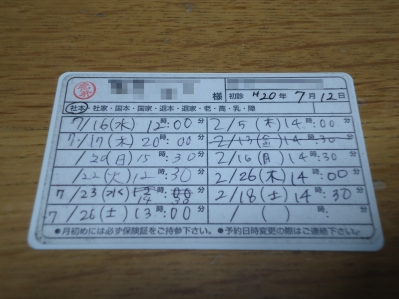 様 初診 H20年 7月 12日
社本 社家・国本・国家・退本・退家・老・高・乳・障
7/16(水) 12時:00分 2/5(木) 14時:00分
7/17(木) 20時:00分 2/13(金) 14時:30分
20(日) 15時:30分 2/16(月) 14時:30分
22(火) 12時:30分 2/26(木) 14時:00分
7/23(水) 14時:30分 2/18(土) 14時:30分
7/26(土) 13時:00分 /( ) 時:分
●月初めには必ず保険証をご持参下さい。●予約日時変更の際はご連絡下さい。